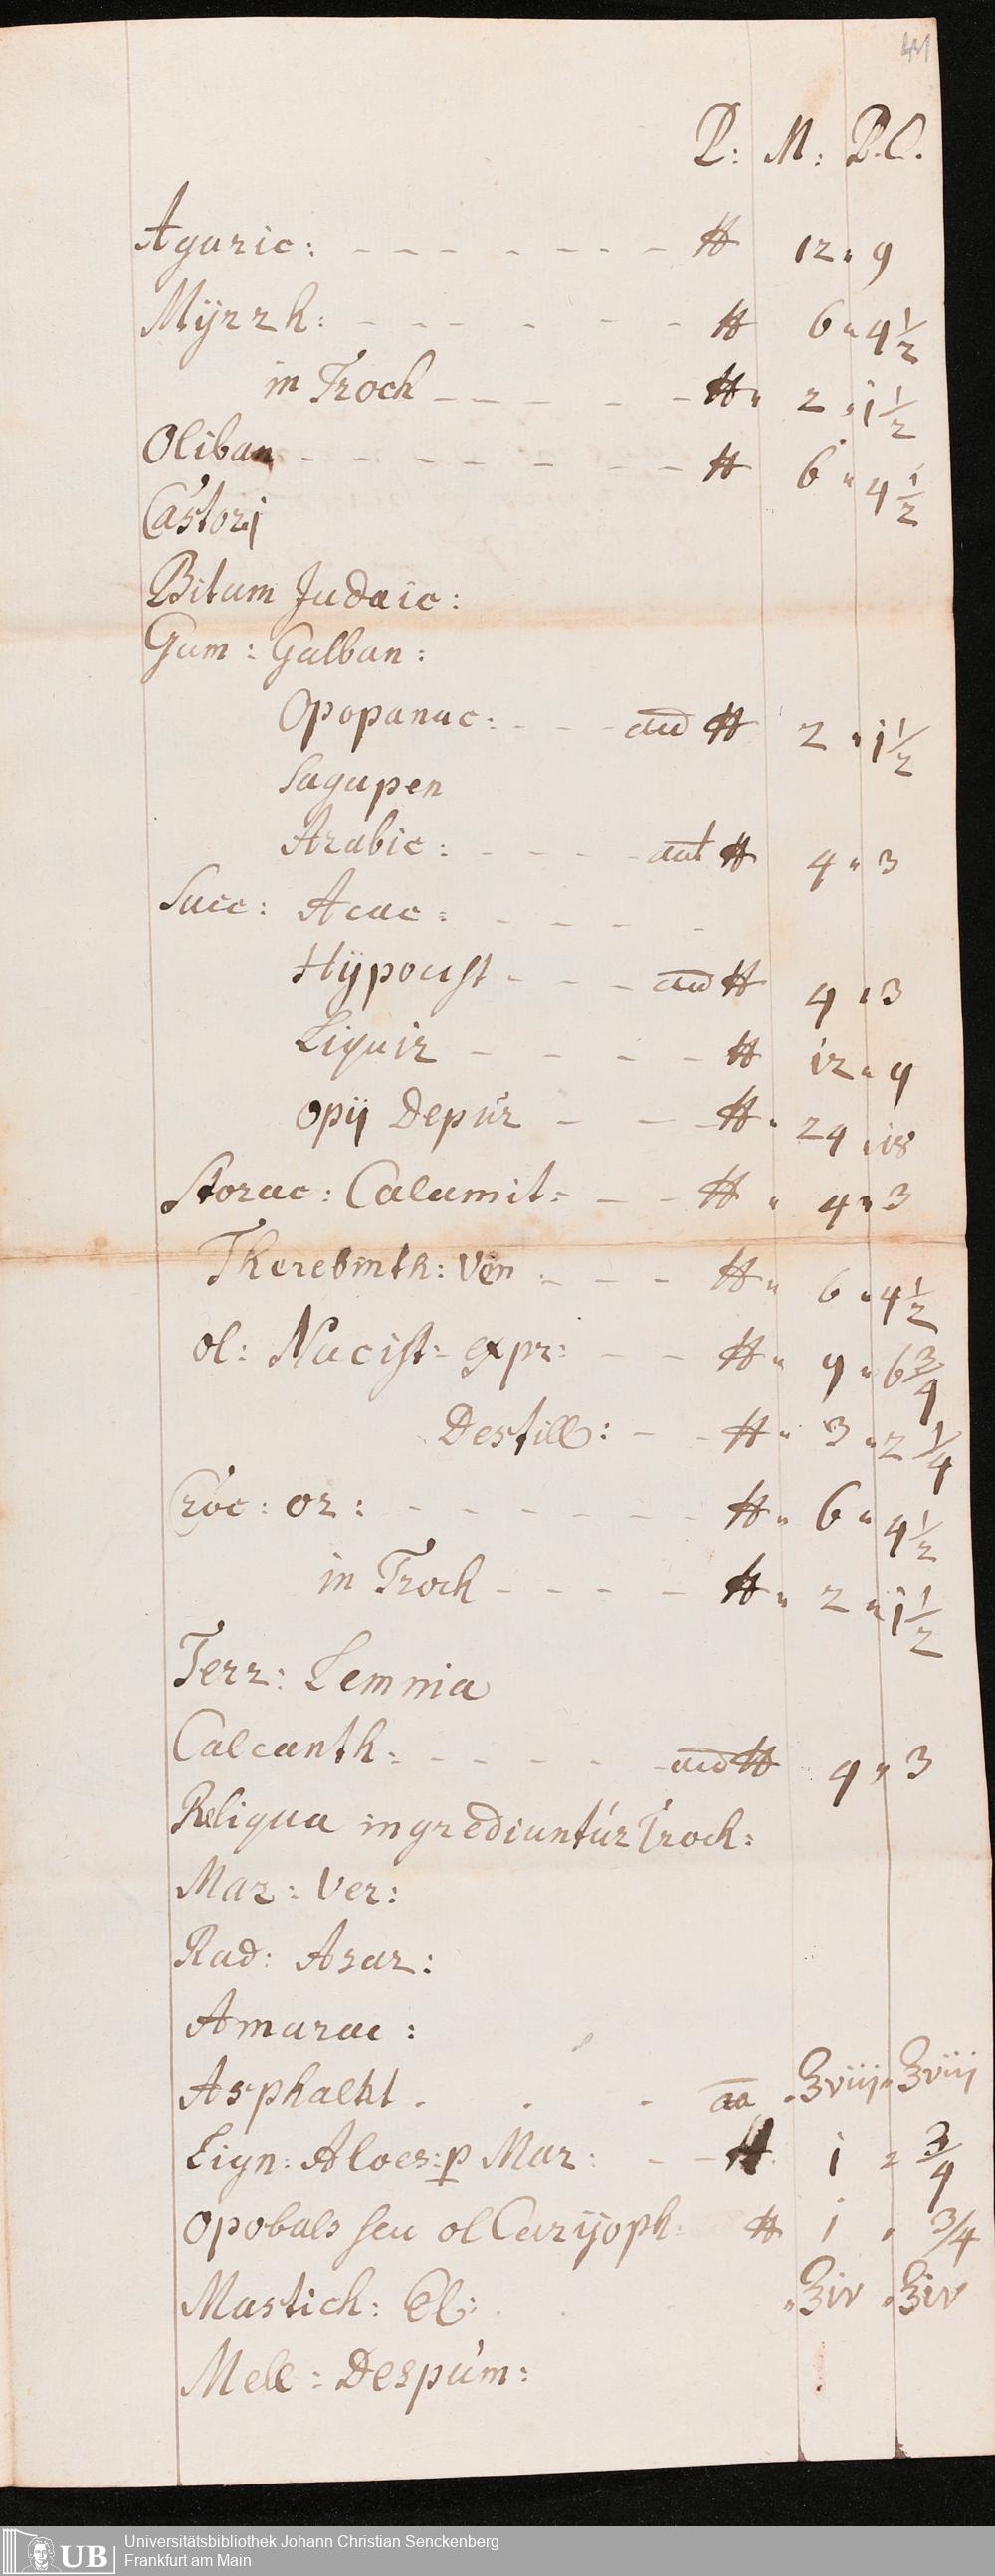 41
P: M: P.C.
Agaric: - - - - - - - ℔ 12 " 9
Mÿrrh: - - - - - - ℔ 6 " 4 1/2
in Troch - - - - - ℔ " 2 " i 1/2
Oliban - - - - - - - ℔ 6 " 4 1/2
Castorj
Bitum Judaic:
Gum: Galban:
Opopanac: - - - ana ℔ 2 " i 1/2
Sagapen
Arabic: - - - - ana ℔ 4 " 3
Succ: Acac: - - - - -
Hÿpocist - - - ana ℔ 4 " 3
Liquir - - - - ℔ 12 " 9
opij Depúr - - - ℔ " 24 " 18
Storac: Calamit: - - - ℔ " 4 " 3
Therebinth: Ven - - - ℔ " 6 " 4 1/2
ol: Nucist: expr: - - ℔ " 9 " 6 3/4
Destill: - - ℔ " 3 " 2 1/4
Croc: or: - - - - - - ℔ " 6 " 4 1/2
in Troch - - - - ℔ " 2 " i 1/2
Terr: Lemnia
Calcanth: - - - - - ana ℔ 4 " 3
Reliqua ingrediuntúr Troch:
Mar: Ver:
Rad: Asar:
Amarac:
Asphalth . . . aa " ʒviij " ʒviij
Lign: Aloes: p Mar: - - ℔ i " 3/4
opobals seu ol Carÿoph ℔ i " 3/4
Mastich: El: . . . " ʒiv " ʒiv
Mell: Despúm:
UB Universitätsbibliothek Johann Christian Senckenberg
Frankfurt am Main